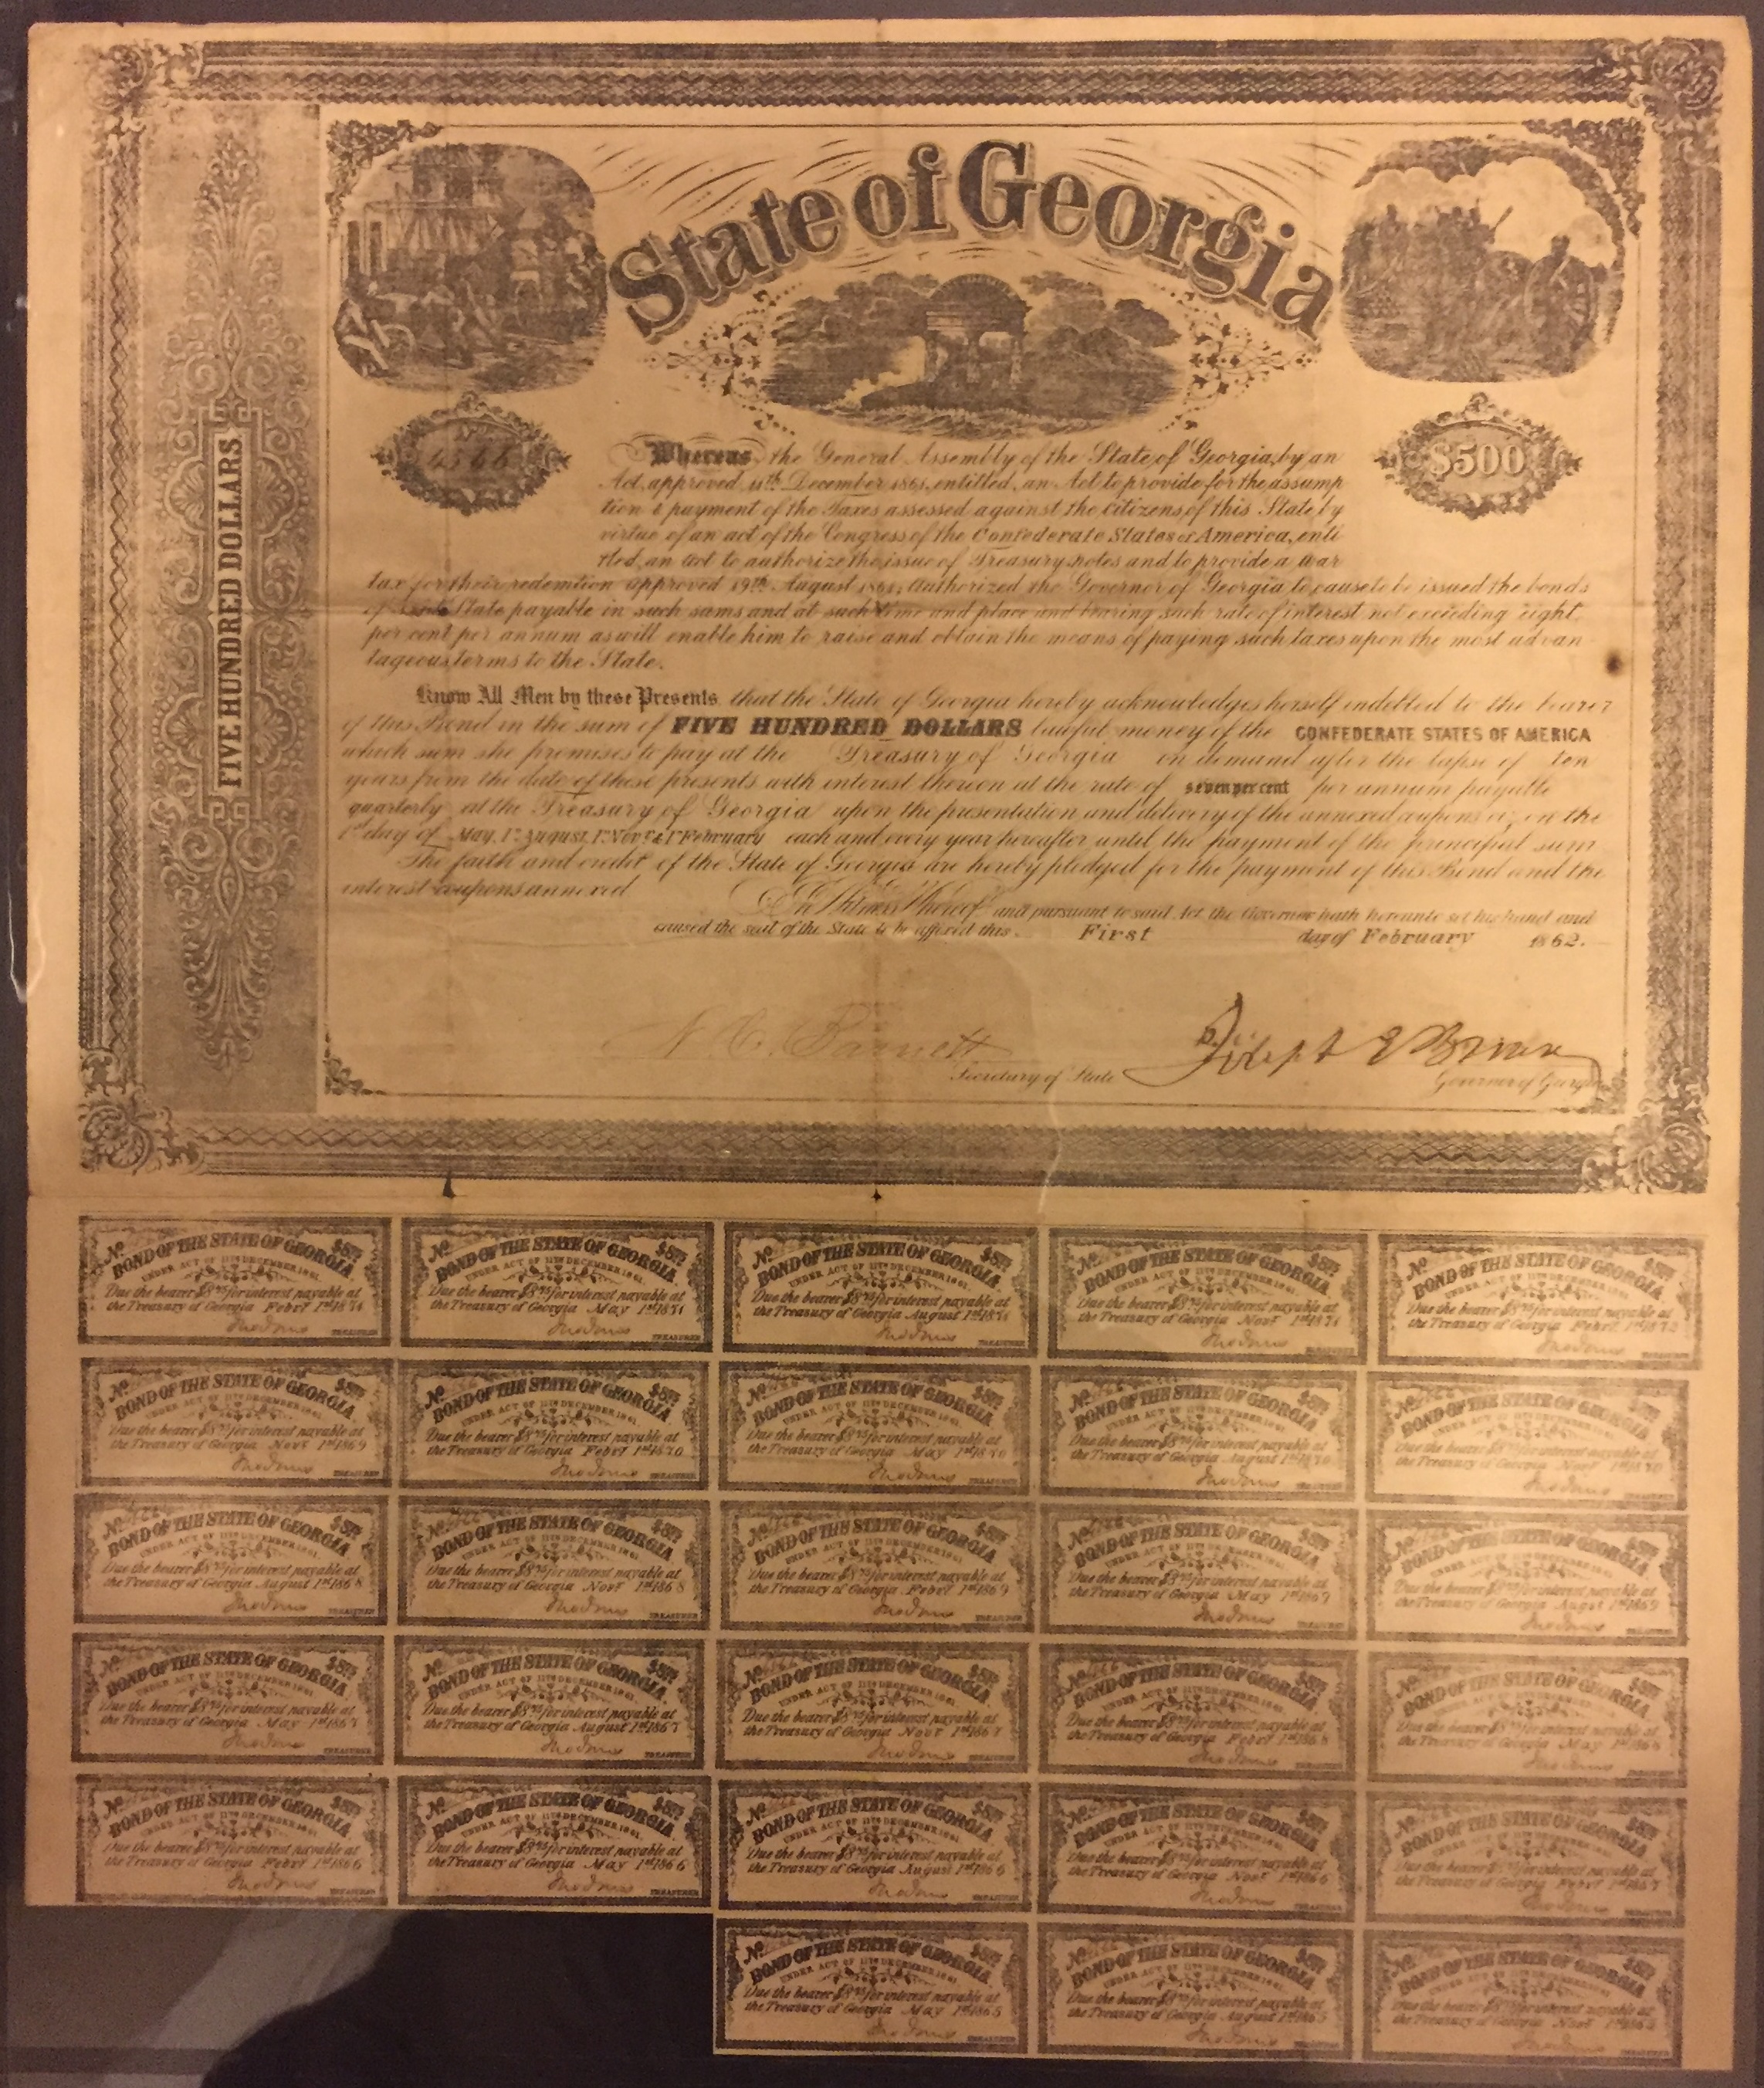 State of Georgia
FIVE HUNDRED DOLLARS
No
$500
Whereas, the General Assembly of the State of Georgia, by an
Act, approved 11th December 1861, entitled, an Act to provide for the assump
tion & payment of the Taxes assessed against the citizens of this State by
virtue of an act of the Congress of the Confederate States of America, enti
tled, an act to authorize the issue of Treasury notes and to provide a war
tax for their redemtion approved 19th August 1861, authorized the Governor of Georgia to cause to be issued the bonds
of said State payable in such sums and at such time and place and bearing such rate of interest not exceeding eight
per cent per annum as will enable him to raise and obtain the means of paying such taxes upon the most advan
tageous terms to the State.
Know All Men by these Presents, that the State of Georgia hereby acknowledges herself indebted to the bearer
of this Bond in the sum of FIVE HUNDRED DOLLARS lawful money of the CONFEDERATE STATES OF AMERICA
which sum she promises to pay at the Treasury of Georgia on demand after the lapse of ten
years from the date of these presents with interest thereon at the rate of seven per cent per annum payable
quarterly at the Treasury of Georgia upon the presentation and delivery of the annexed coupons on the
1st day of May, 1st August, 1st Novr & 1st February each and every year hereafter until the payment of the principal sum
The faith and credit of the State of Georgia are hereby pledged for the payment of this Bond and the
interest coupons annexed
In Witness Whereof and pursuant to said Act the Governor hath hereunto set his hand and
caused the seal of the State to be affixed this First day of February 1862.
N. C. Barnett
Secretary of State
Joseph E Brown
Governor of Georgia
No $8 75
BOND OF THE STATE OF GEORGIA
UNDER ACT OF 11TH DECEMBER 1861.
Due the bearer $8 75 for interest payable at
the Treasury of Georgia Feby 1st 1871
TREASURER
No $8 75
BOND OF THE STATE OF GEORGIA
UNDER ACT OF 11TH DECEMBER 1861.
Due the bearer $8 75 for interest payable at
the Treasury of Georgia May 1st 1871
TREASURER
No $8 75
BOND OF THE STATE OF GEORGIA
UNDER ACT OF 11TH DECEMBER 1861.
Due the bearer $8 75 for interest payable at
the Treasury of Georgia August 1st 1871
TREASURER
No $8 75
BOND OF THE STATE OF GEORGIA
UNDER ACT OF 11TH DECEMBER 1861.
Due the bearer $8 75 for interest payable at
the Treasury of Georgia Novr 1st 1871
TREASURER
No $8 75
BOND OF THE STATE OF GEORGIA
UNDER ACT OF 11TH DECEMBER 1861.
Due the bearer $8 75 for interest payable at
the Treasury of Georgia Feby 1st 1872
TREASURER
No $8 75
BOND OF THE STATE OF GEORGIA
UNDER ACT OF 11TH DECEMBER 1861.
Due the bearer $8 75 for interest payable at
the Treasury of Georgia Novr 1st 1869
TREASURER
No $8 75
BOND OF THE STATE OF GEORGIA
UNDER ACT OF 11TH DECEMBER 1861.
Due the bearer $8 75 for interest payable at
the Treasury of Georgia Feby 1st 1870
TREASURER
No $8 75
BOND OF THE STATE OF GEORGIA
UNDER ACT OF 11TH DECEMBER 1861.
Due the bearer $8 75 for interest payable at
the Treasury of Georgia May 1st 1870
TREASURER
No $8 75
BOND OF THE STATE OF GEORGIA
UNDER ACT OF 11TH DECEMBER 1861.
Due the bearer $8 75 for interest payable at
the Treasury of Georgia August 1st 1870
TREASURER
No $8 75
BOND OF THE STATE OF GEORGIA
UNDER ACT OF 11TH DECEMBER 1861.
Due the bearer $8 75 for interest payable at
the Treasury of Georgia Novr 1st 1870
TREASURER
No $8 75
BOND OF THE STATE OF GEORGIA
UNDER ACT OF 11TH DECEMBER 1861.
Due the bearer $8 75 for interest payable at
the Treasury of Georgia August 1st 1868
TREASURER
No $8 75
BOND OF THE STATE OF GEORGIA
UNDER ACT OF 11TH DECEMBER 1861.
Due the bearer $8 75 for interest payable at
the Treasury of Georgia Novr 1st 1868
TREASURER
No $8 75
BOND OF THE STATE OF GEORGIA
UNDER ACT OF 11TH DECEMBER 1861.
Due the bearer $8 75 for interest payable at
the Treasury of Georgia Feby 1st 1869
TREASURER
No $8 75
BOND OF THE STATE OF GEORGIA
UNDER ACT OF 11TH DECEMBER 1861.
Due the bearer $8 75 for interest payable at
the Treasury of Georgia May 1st 1869
TREASURER
No $8 75
BOND OF THE STATE OF GEORGIA
UNDER ACT OF 11TH DECEMBER 1861.
Due the bearer $8 75 for interest payable at
the Treasury of Georgia August 1st 1869
TREASURER
No $8 75
BOND OF THE STATE OF GEORGIA
UNDER ACT OF 11TH DECEMBER 1861.
Due the bearer $8 75 for interest payable at
the Treasury of Georgia May 1st 1867
TREASURER
No $8 75
BOND OF THE STATE OF GEORGIA
UNDER ACT OF 11TH DECEMBER 1861.
Due the bearer $8 75 for interest payable at
the Treasury of Georgia August 1st 1867
TREASURER
No $8 75
BOND OF THE STATE OF GEORGIA
UNDER ACT OF 11TH DECEMBER 1861.
Due the bearer $8 75 for interest payable at
the Treasury of Georgia Novr 1st 1867
TREASURER
No $8 75
BOND OF THE STATE OF GEORGIA
UNDER ACT OF 11TH DECEMBER 1861.
Due the bearer $8 75 for interest payable at
the Treasury of Georgia Feby 1st 1868
TREASURER
No $8 75
BOND OF THE STATE OF GEORGIA
UNDER ACT OF 11TH DECEMBER 1861.
Due the bearer $8 75 for interest payable at
the Treasury of Georgia May 1st 1868
TREASURER
No $8 75
BOND OF THE STATE OF GEORGIA
UNDER ACT OF 11TH DECEMBER 1861.
Due the bearer $8 75 for interest payable at
the Treasury of Georgia Feby 1st 1866
TREASURER
No $8 75
BOND OF THE STATE OF GEORGIA
UNDER ACT OF 11TH DECEMBER 1861.
Due the bearer $8 75 for interest payable at
the Treasury of Georgia May 1st 1866
TREASURER
No $8 75
BOND OF THE STATE OF GEORGIA
UNDER ACT OF 11TH DECEMBER 1861.
Due the bearer $8 75 for interest payable at
the Treasury of Georgia August 1st 1866
TREASURER
No $8 75
BOND OF THE STATE OF GEORGIA
UNDER ACT OF 11TH DECEMBER 1861.
Due the bearer $8 75 for interest payable at
the Treasury of Georgia Novr 1st 1866
TREASURER
No $8 75
BOND OF THE STATE OF GEORGIA
UNDER ACT OF 11TH DECEMBER 1861.
Due the bearer $8 75 for interest payable at
the Treasury of Georgia Feby 1st 1867
TREASURER
No $8 75
BOND OF THE STATE OF GEORGIA
UNDER ACT OF 11TH DECEMBER 1861.
Due the bearer $8 75 for interest payable at
the Treasury of Georgia May 1st 1865
TREASURER
No $8 75
BOND OF THE STATE OF GEORGIA
UNDER ACT OF 11TH DECEMBER 1861.
Due the bearer $8 75 for interest payable at
the Treasury of Georgia August 1st 1865
TREASURER
No $8 75
BOND OF THE STATE OF GEORGIA
UNDER ACT OF 11TH DECEMBER 1861.
Due the bearer $8 75 for interest payable at
the Treasury of Georgia Novr 1st 1865
TREASURER